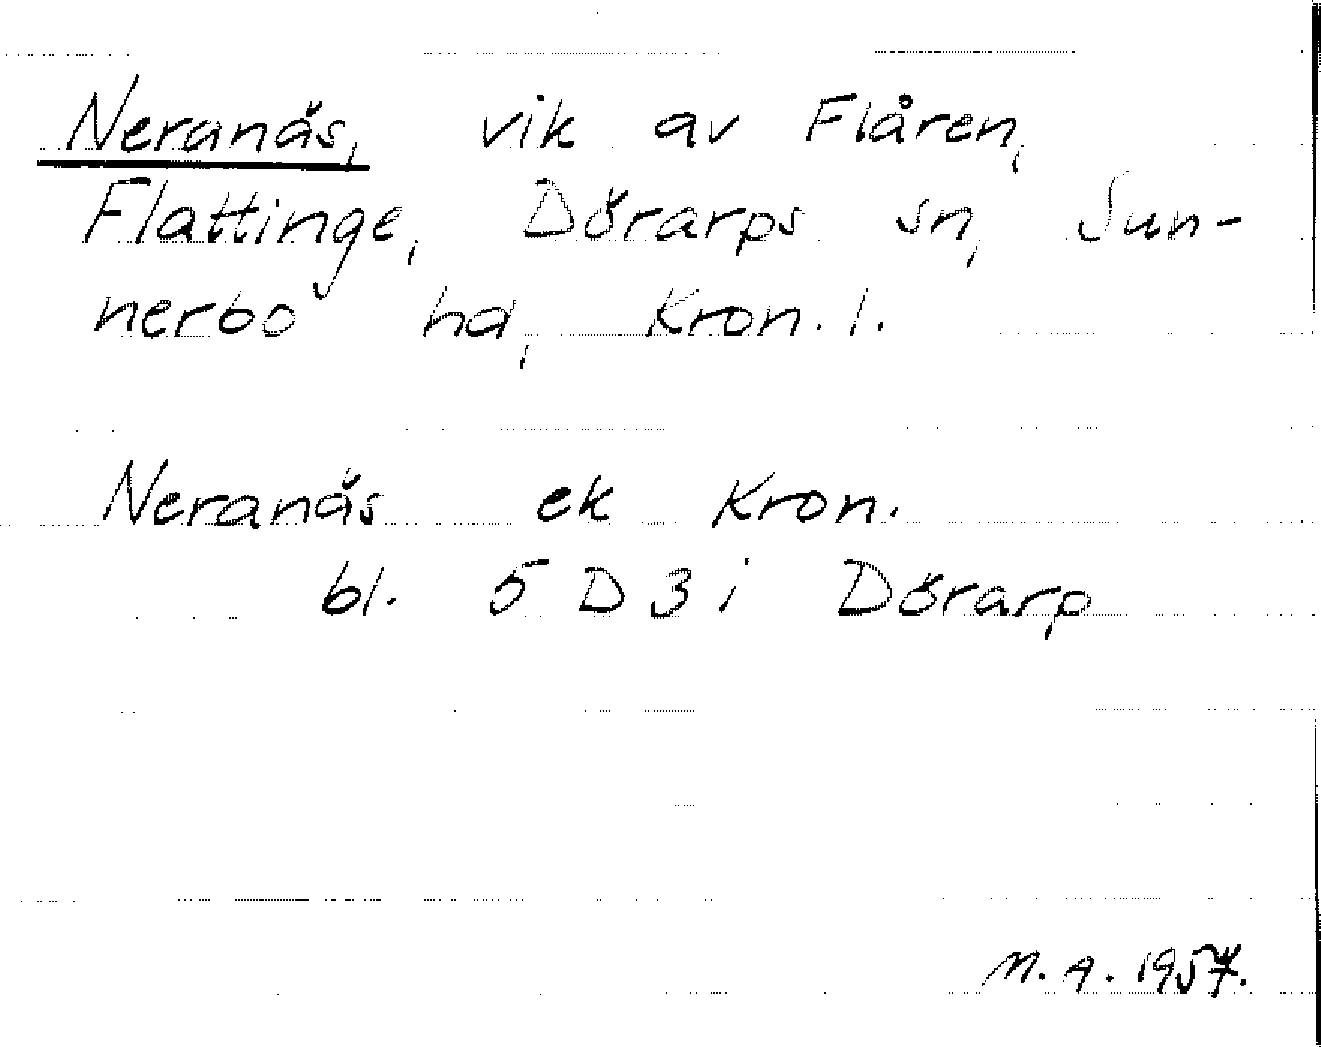 Neranäs, vik av Flåren,
Flattinge, Dörarps sn, Sun-
nerbo hd, Kron. l.
Neranäs ek Kron.
bl. 5 D 3 i Dörarp
M. A. 1957.